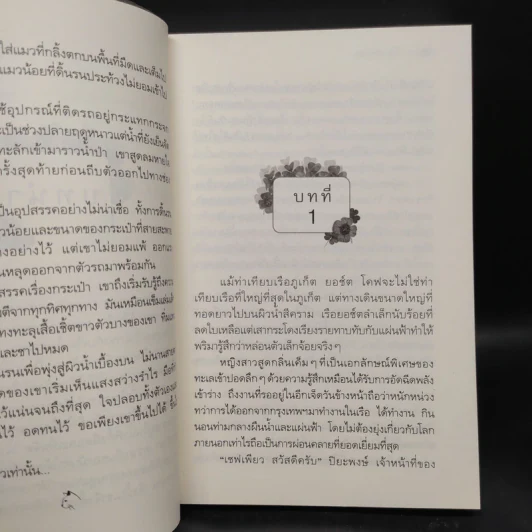 ใส่แมวที่กลิ้งตกบนพื้นที่มืดและเต็มไป
แมวน้อยที่ดิ้นรนประท้วงไม่ยอมเข้าไป
ช้อุปกรณ์ที่ติดรถอยู่กระแทกกระจก
ะเป็นช่วงปลายฤดูหนาวแต่น้ำที่ยังเย็นจัด
ทะลักเข้ามาราวน้ำป่า เขาสูดลมหายใจ
รั้งสุดท้ายก่อนถีบตัวออกไปทางช่อง
ป็นอุปสรรคอย่างไม่น่าเชื่อ ทั้งการดิ้นรน
วน้อยและขนาดของกระเป๋าที่สายสะพาย
างอย่างไว้ แต่เขาไม่ยอมแพ้ ออกแรง
นหลุดออกจากตัวรถมาพร้อมกัน
สรรคเรื่องกระเป๋า เขาถึงเริ่มรับรู้ถึงความ
ตีจากทุกทิศทุกทาง มันเหมือนเข็มเล่มเล็ก
ทงทะลุเสื้อเชิ้ตขาวตัวบางของเขา
และชาไปหมด
นรนเพื่อพุ่งสู่ผิวน้ำเบื้องบน ไม่นานสาย
ดของเขาเริ่มเห็นแสงสว่างรำไร
ว้แน่นจนถึงที่สุด ใจปลอบทั้งตัวเอง
นไว้ อดทนไว้ ขอเพียงเขาขึ้นไปได้
วเท่านั้น...
บทที่
1
แม้ท่าเทียบเรือภูเก็ต ยอช์ต โคฟจะไม่ใช่ท่า
เทียบเรือที่ใหญ่ที่สุดในภูเก็ต แต่ทางเดินขนาดใหญ่ที่
ทอดยาวไปบนผิวน้ำสีคราม เรือยอช์ตลำเล็กนับร้อยที่
ลดใบเหลือแต่เสากระโดงเรียงรายทาบทับกับแผ่นฟ้าทำให้
พริมารู้สึกว่าหล่อนตัวเล็กจ้อยจริงๆ
หญิงสาวสูดกลิ่นเค็มๆ ที่เป็นเอกลักษณ์พิเศษของ
ทะเลเข้าปอดลึกๆ ด้วยความรู้สึกเหมือนได้รับการอัดฉีดพลัง
เข้าร่าง ถึงงานที่รออยู่ในอีกเจ็ดวันข้างหน้าถือว่าหนักหน่วง
ทว่าการได้ออกจากกรุงเทพฯ มาทำงานในเรือ ได้ทำงาน กิน
นอนท่ามกลางผืนน้ำและแผ่นฟ้า โดยไม่ต้องยุ่งเกี่ยวกับโลก
ภายนอกเท่าไรถือเป็นการผ่อนคลายที่ยอดเยี่ยมที่สุด
"เชฟเพียว สวัสดีครับ" ปิยะพงษ์ เจ้าหน้าที่ของ